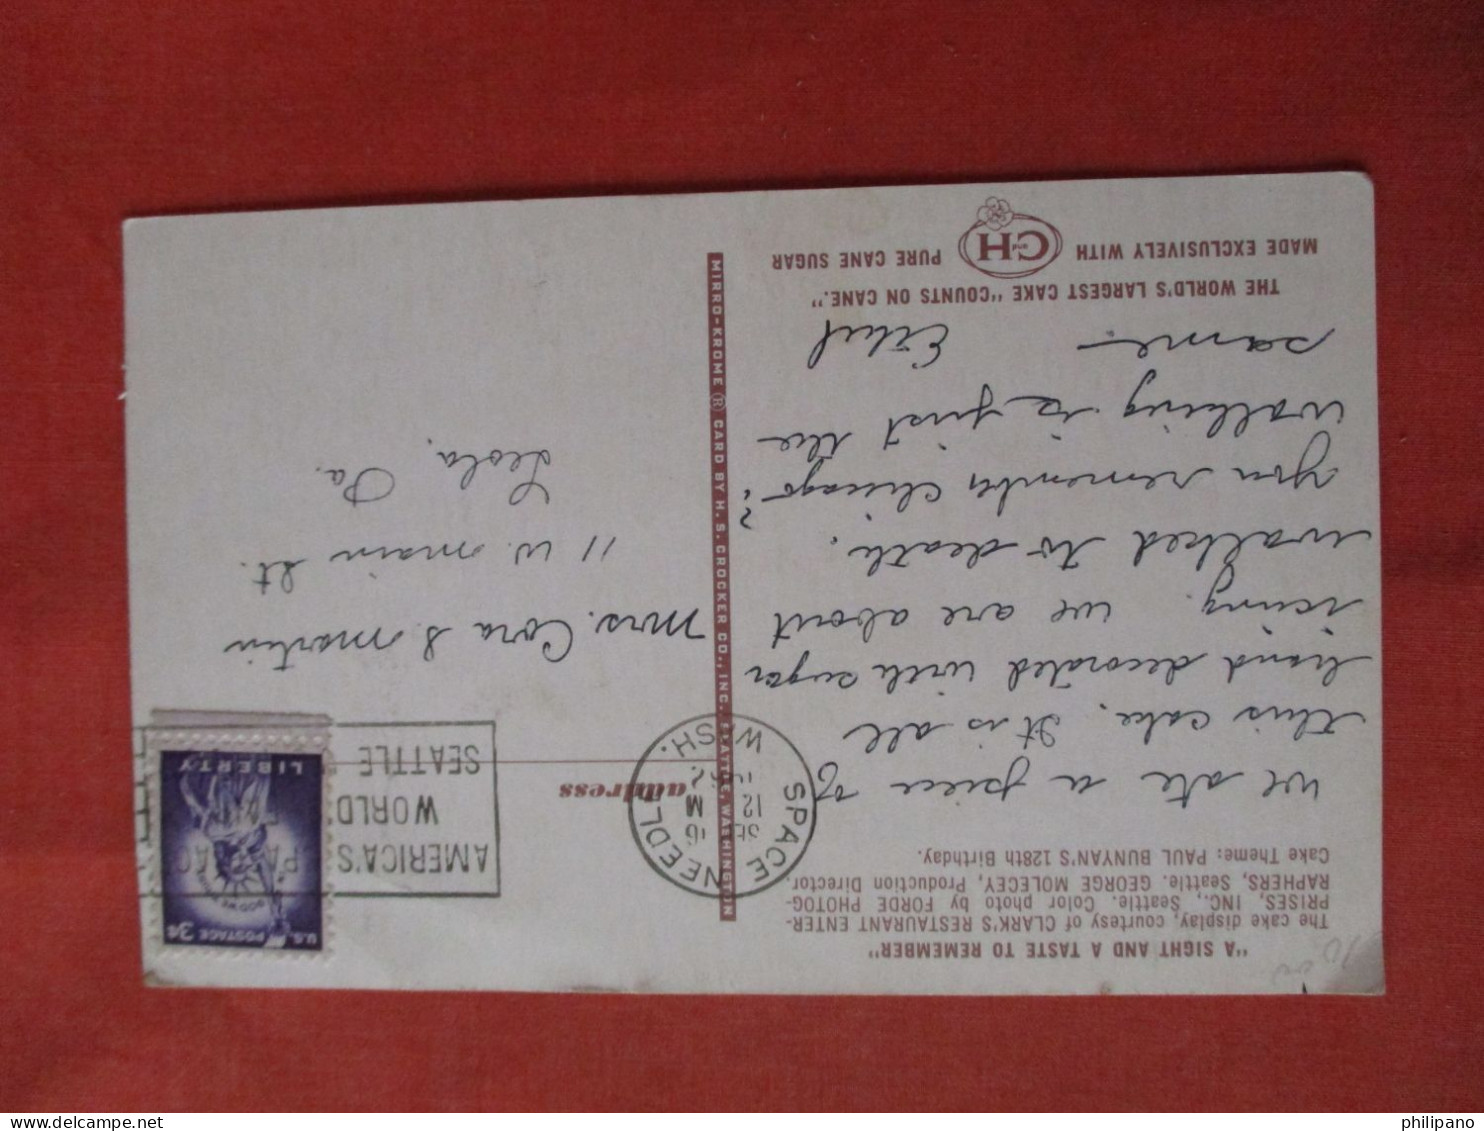 "A SIGHT AND A TASTE TO REMEMBER"
The cake display, courtesy of CLARK'S RESTAURANT ENTER-
PRISES, INC., Seattle. Color photo by FORDE PHOTOG-
RAPHERS, Seattle. GEORGE MOLECEY, Production Director.
Cake Theme: PAUL BUNYAN'S 128th Birthday.
We ate a piece of
this cake. It is all
hand decorated with sugar
icing. We are about
walked to death.
You remember Chicago?
Walking is just the
same. Ethel
THE WORLD'S LARGEST CAKE "COUNTS ON CANE."
MADE EXCLUSIVELY WITH C and H PURE CANE SUGAR
MIRRO-KROME ® CARD BY H. S. CROCKER CO., INC. SEATTLE, WASHINGTON
SPACE NEEDLE
16
12 M
WASH.
AMERICA'S
WORLD
SEATTLE
U.S. POSTAGE 3¢
LIBERTY
address
Mrs. Cora S. Martin
11 W. Main St.
Leola,
Pa.
philipano